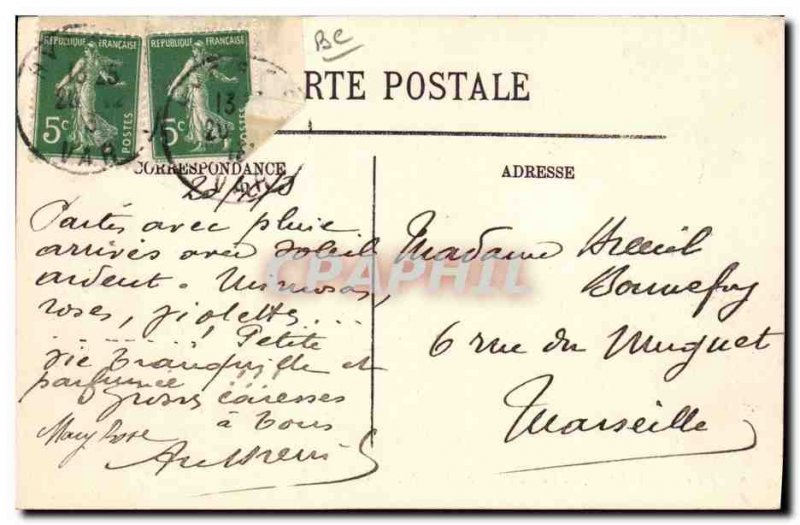 BC
REPUBLIQUE FRANÇAISE
5c POSTES
REPUBLIQUE FRANÇAISE
5c POSTES
VAR
13
RTE POSTALE
CORRESPONDANCE
ADRESSE
Partis avec pluie
arrivés avec soleil
ardent. Mimosas,
roses, violettes...
Petite
vie tranquille et
parfumée
Grosses caresses
à tous
Mary Rose
Madame
Bonnefoy
6 rue du Muguet
Marseille
CPAPHIL